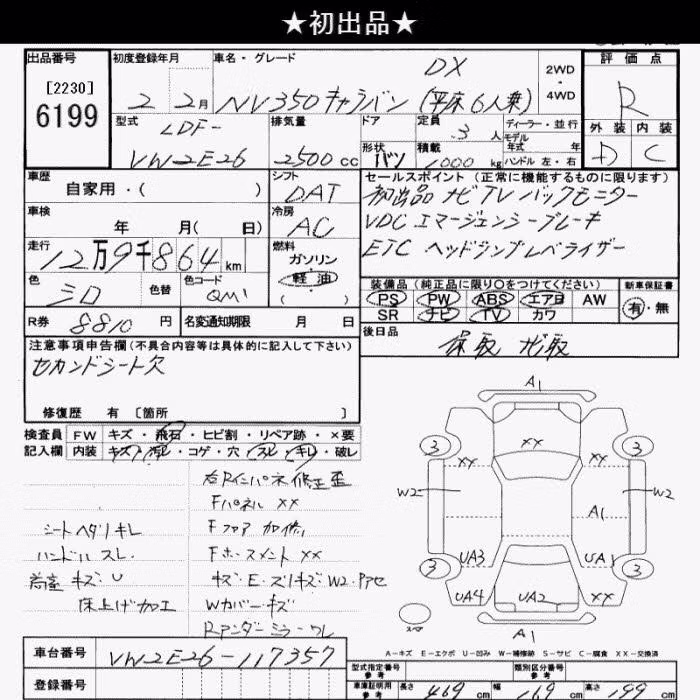 ★初出品★
出品番号
[2230]
6199
初度登録年月
2 2月
車名・グレード
DX
NV350キャラバン (平床6人乗)
2WD
・
4WD
評価点
R
外装 内装
D C
型式
LDF-
VW2E26
排気量
2500 cc
ドア
形状
バン
定員
3 人
積載
1000 kg
ディーラー・並行
モデル
年式 年
ハンドル 左・右
車歴
自家用・( )
シフト
DAT
車検
年 月( 日)
冷房
AC
走行
12万9千864 km
燃料
ガソリン
軽油
( )
色
シロ
色替
色コード
QM1
R券
8810 円
名変通知期限 月 日
セールスポイント (正常に機能するものに限ります)
初出品 ナビ TV バックモニター
VDC エマージェンシーブレーキ
ETC ヘッドランプレベライザー
装備品 (純正品に限り○をつけてください)
PS PW ABS エアB AW
SR ナビ TV カワ
新車保証書
有・無
後日品
保取 ナビ取
注意事項申告欄 (不具合内容等は具体的に記入して下さい)
セカンドシート欠
修復歴 有 〔箇所 〕
検査員
記入欄
FW キズ・飛石・ヒビ割・リペア跡・×要
内装 キズ・汚レ・コゲ・穴・スレ・キレ・破レ
右Rインパネ修正歪
Fパネル ××
シートヘタリキレ
Fフロア加修
ハンドルスレ
Fホースメント ××
荷室キズ・U
キズ・E・ズリキズ・W2・アセ
床上げ加工
Wカバーキズ
Rアンダーミラーワレ
A1
××
3
××
××
3
W2
W2
A1
UA3
UA1
3
3
UA4
UA2
××
スペ
A1
A-キズ E-エクボ U-凹み W-補修跡 S-サビ C-腐食 ××-交換済
車台番号
VW2E26-117357
登録番号
型式指定番号
参考
類別区分番号
参考
車庫証明用
参考
長さ 469 cm
幅 169 cm
高さ 199 cm